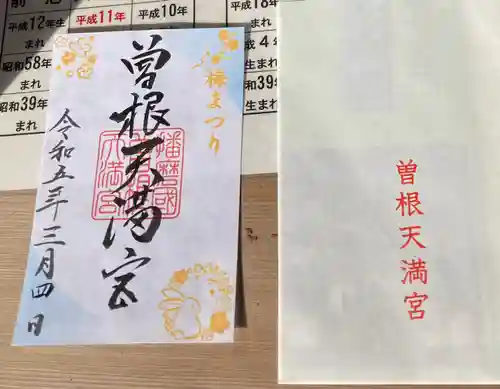 平成12年生
まれ
平成11年
平成10年
平成18年
昭和58年
まれ
昭和39年
まれ
まれ
生まれ
昭和39年
生まれ
梅まつり
曽根天満宮
播磨國
令和五年三月四日
曽根天満宮